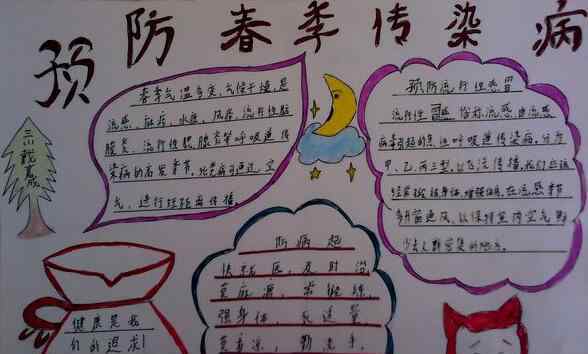 预防春季传染病
春季气温多变,气候干燥,是
流感、麻疹、水痘、风疹、流行性脑
膜炎、流行性腮腺炎等呼吸道传
染病的高发季节。
气,进行短距离传播。
预防流行性感冒
流行性感冒俗称流感,由流感
病毒引起的急性呼吸道传染病,分为
甲、乙、丙三型,以飞沫传播,我们应该
经常锻炼身体,增强体质,在流感季
多开窗通风,以保持室内空气
少去人群密集的地方。
三川战友
防病起
强身体,
莫着凉,勤洗手,
健康是我
们的追求!